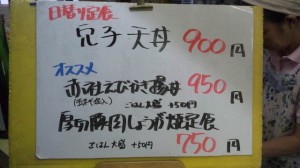 日替り定食
穴子天丼 900円
オススメ
赤社えびかき揚丼 950円
ごはん大盛 +50円
厚切豚肉しょうが焼定食
ごはん大盛 +50円 750円